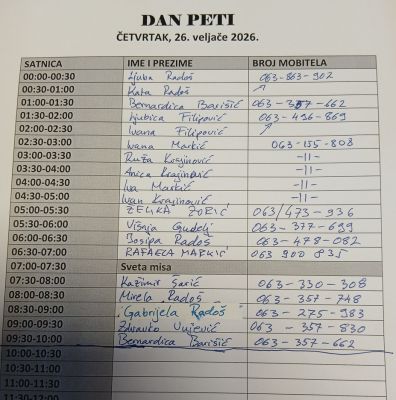 DAN PETI
ČETVRTAK, 26. veljače 2026.
SATNICA IME I PREZIME BROJ MOBITELA
00:00-00:30 Ljuba Radoš 063-863-902
00:30-01:00 Kata Radoš
01:00-01:30 Bernardica Barišić 063-357-662
01:30-02:00 Ljubica Filipović 063-496-869
02:00-02:30 Ivana Filipović
02:30-03:00 Ivana Markić 063-155-808
03:00-03:30 Ruža Krajinović -11-
03:30-04:00 Anica Krajinović -11-
04:00-04:30 Iva Markić -11-
04:30-05:00 Ivan Krajinović -11-
05:00-05:30 ZELKA ZORIĆ 063/473-936
05:30-06:00 Višnja Gudelj 063-377-699
06:00-06:30 Josipa Radoš 063-478-082
06:30-07:00 RAFAELA MARKIĆ 063 900 835
07:00-07:30 Sveta misa
07:30-08:00 Kazimir Šarić 063-330-308
08:00-08:30 Mirela Radoš 063-357-748
08:30-09:00 Gabrijela Radoš 063-275-983
09:00-09:30 Zdravko Vujević 063-357-830
09:30-10:00 Bernardica Barišić 063-357-662
10:00-10:30
10:30-11:00
11:00-11:30